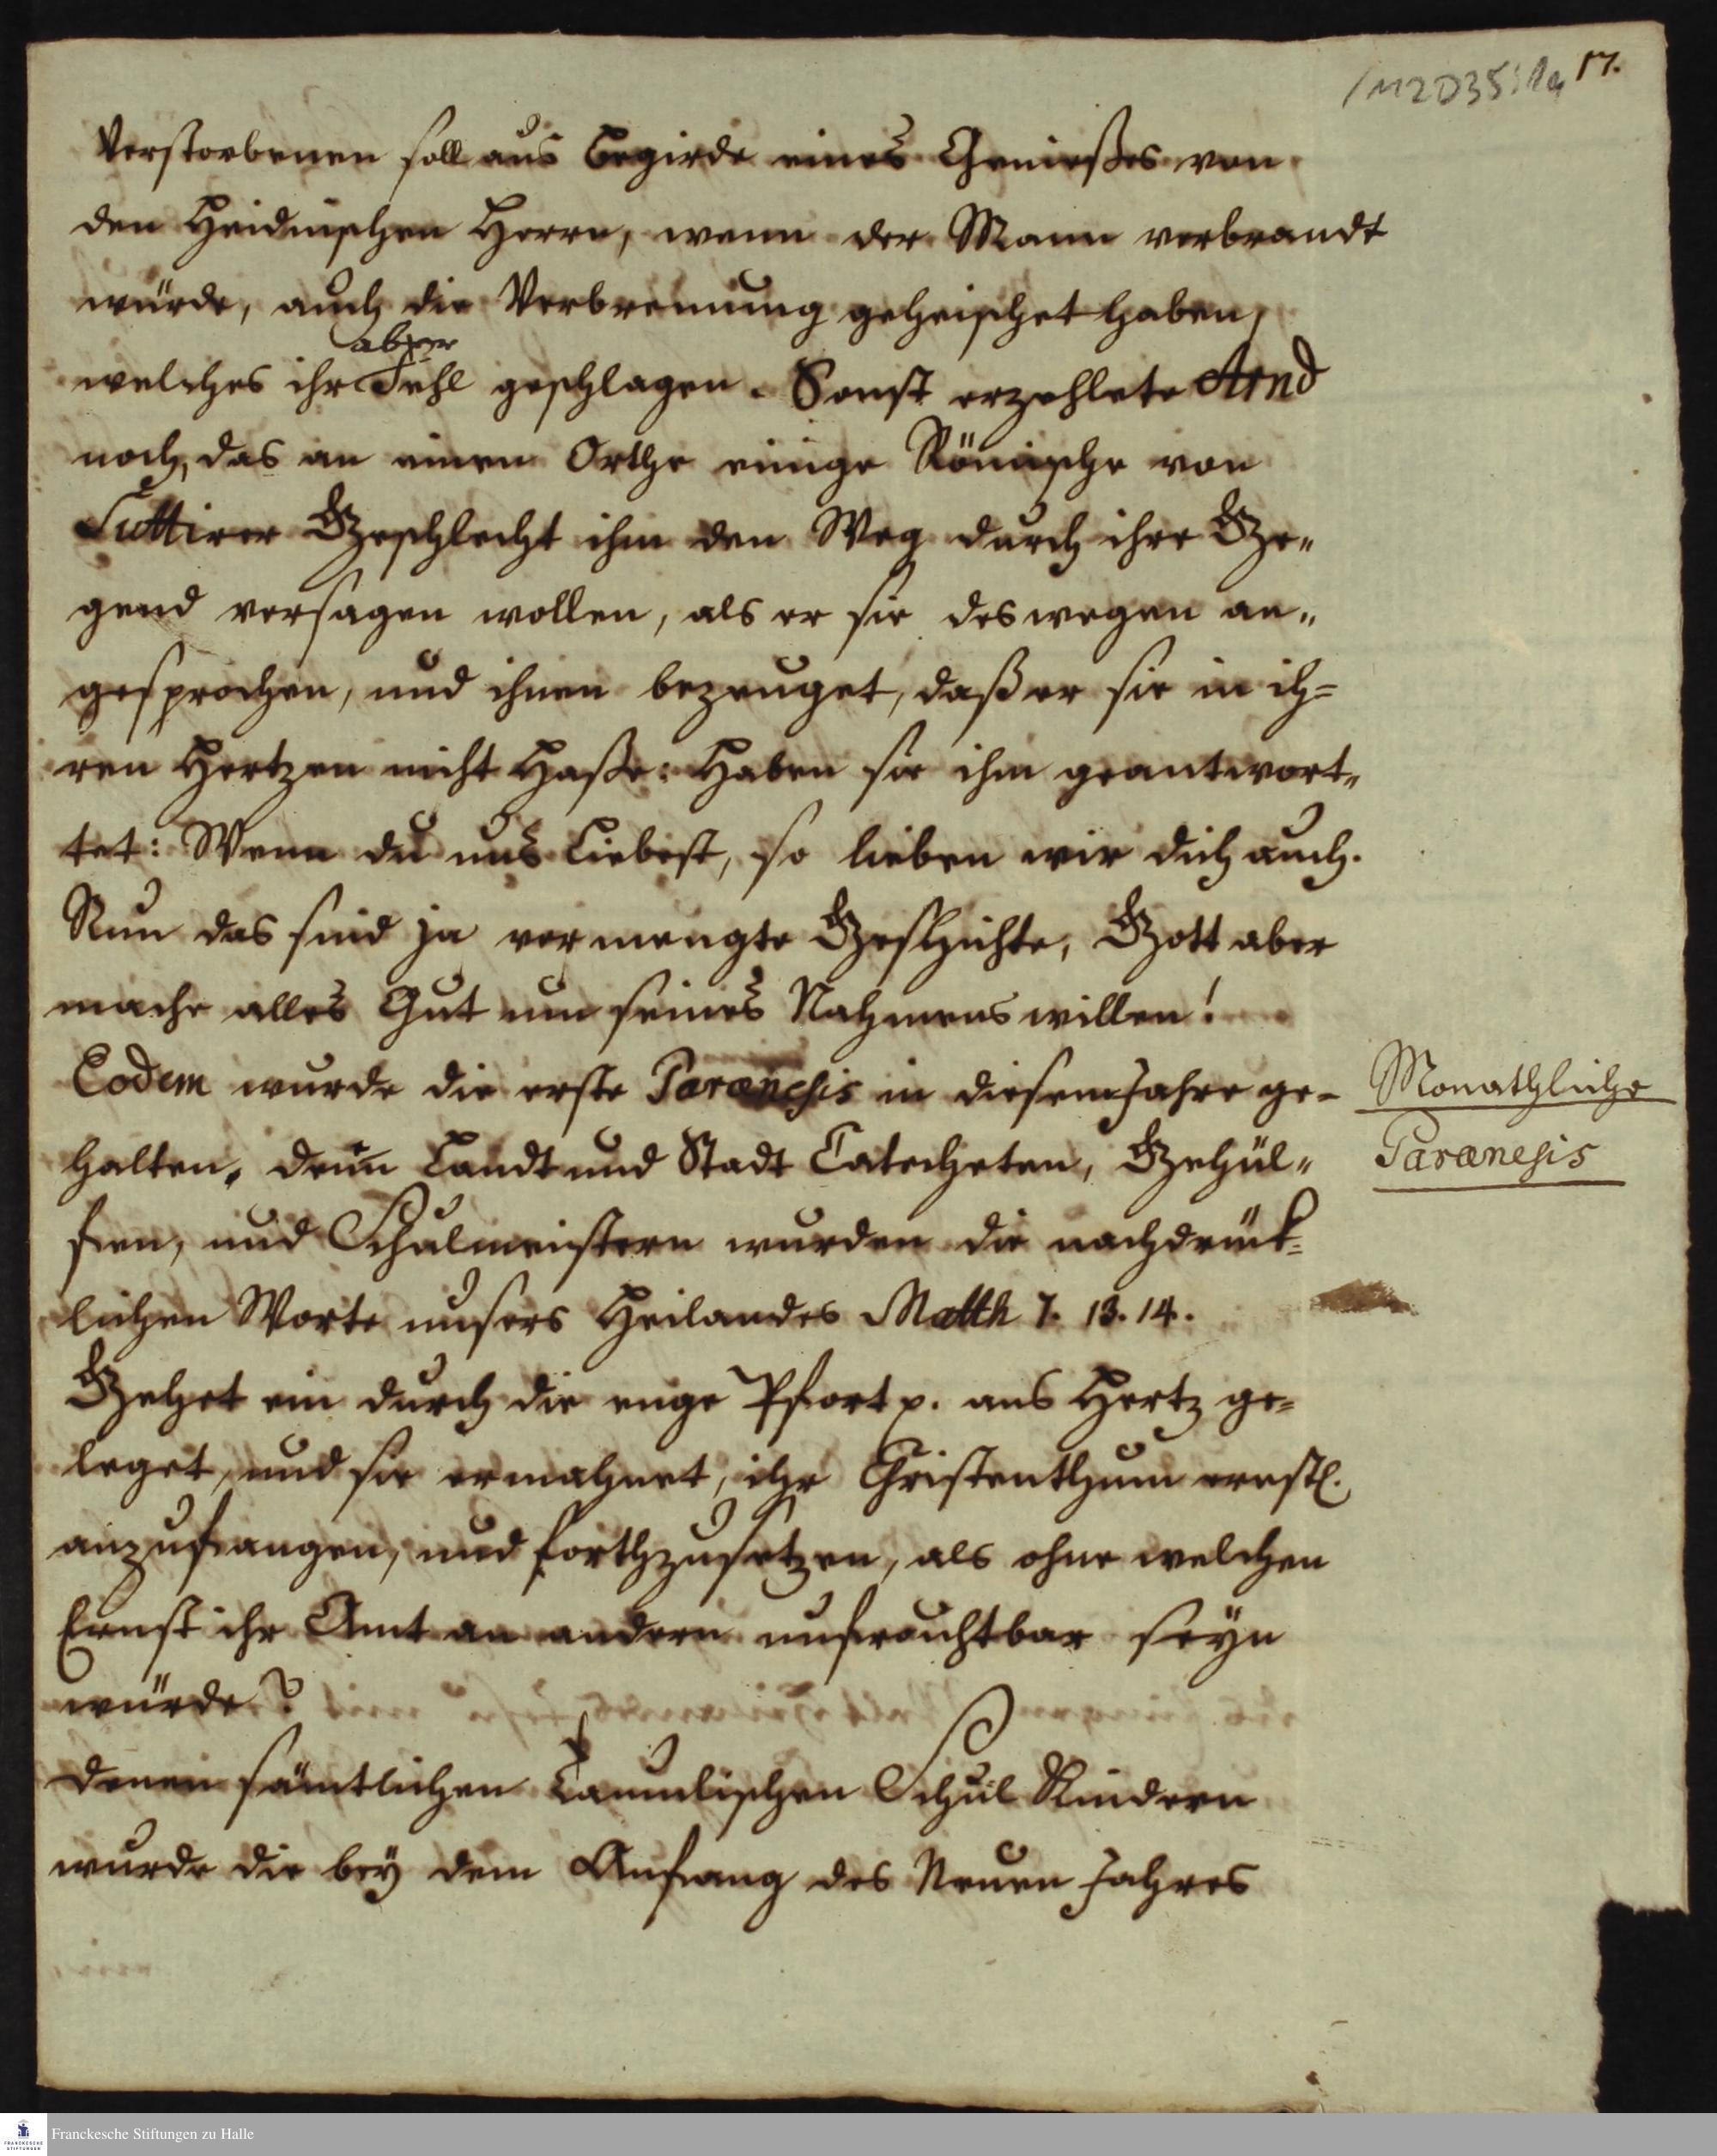 1M2D35:1a 17.
Verstorbenen soll aus begirde eines Genießes von
den Heidnischen Herrn, wenn der Mann verbrandt
würde, auch die Verbrennung geheischet haben,
aber
welches ihr Fehl geschlagen. Sonst erzehlete Arnd
noch, das an einem Orthe einige Römische von
Suttirer Geschlecht ihm den Weg durch ihre Ge„
gend versagen wollen, als er sie deswegen an„
gesprochen, und ihnen bezeuget, daß er sie in ih=
ren Hertzen nicht Haße: Haben sie ihm geantwort„
tet: Wenn du uns Liebest, so lieben wir dich auch.
Nun das sind ja vermengte Geschichte, Gott aber
mache alles Gut um seines Nahmens willen!
Eodem wurde die erste Parænesis in diesem Jahre ge-
Monathliche
halten, denen Landt und Stadt Catecheten, Gehül„
Parænesis
fen, und Schulmeistern wurden die nachdrück=
lichen Worte unsers Heilandes Matth 7. 13. 14.
Gehet ein durch die enge Pfort p. ans Hertz ge=
leget, und sie ermahnet, ihr Christenthum ernstl.
anzufangen, und forthzusetzen, als ohne welchen
Ernst ihr Amt an andern unfruchtbar seyn
würde.
denen sämtlichen Tamulischen Schul Kindern
wurde die bey dem Anfang des Neuen Jahres
FRANCKESCHE STIFTUNGEN
Franckesche Stiftungen zu Halle